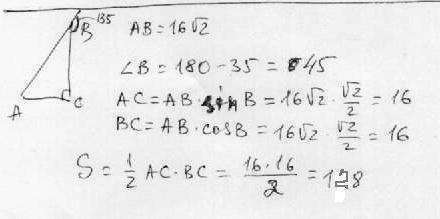 135
B
A
C
AB = 16√2
∠B = 180 - 35 = 45
AC = AB · sin B = 16√2 · √2/2 = 16
BC = AB · cos B = 16√2 · √2/2 = 16
S = 1/2 AC · BC = 16·16/2 = 128